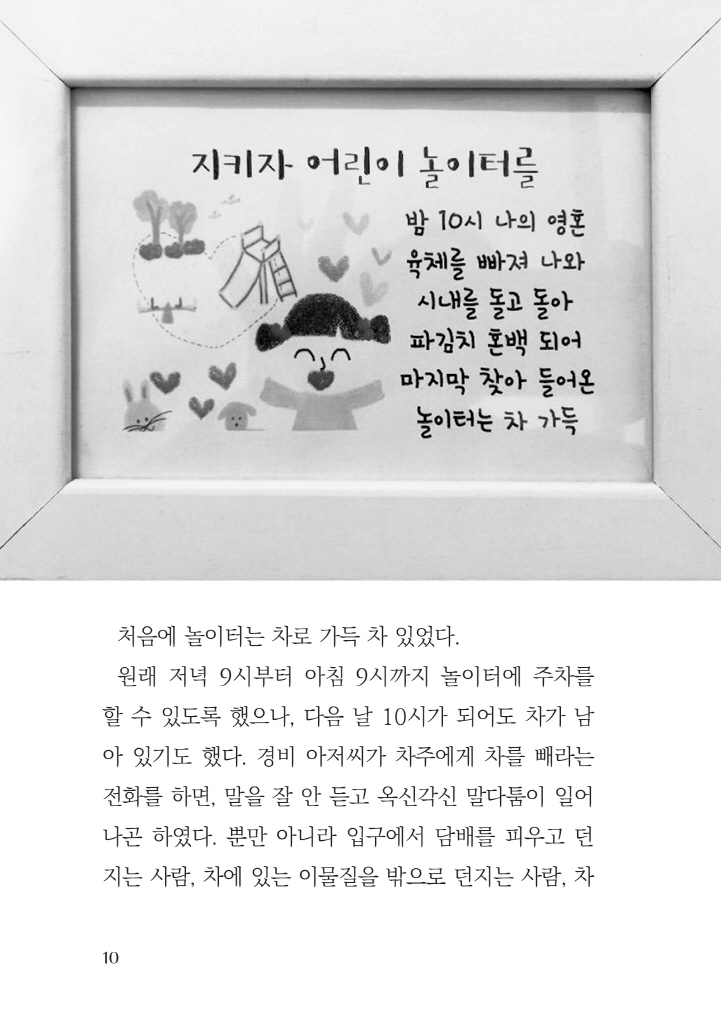 지키자 어린이 놀이터를
밤 10시 나의 영혼
육체를 빠져 나와
시내를 돌고 돌아
파김치 혼백 되어
마지막 찾아 들어온
놀이터는 차 가득
처음에 놀이터는 차로 가득 차 있었다.
원래 저녁 9시부터 아침 9시까지 놀이터에 주차를
할 수 있도록 했으나, 다음 날 10시가 되어도 차가 남
아 있기도 했다. 경비 아저씨가 차주에게 차를 빼라는
전화를 하면, 말을 잘 안 듣고 옥신각신 말다툼이 일어
나곤 하였다. 뿐만 아니라 입구에서 담배를 피우고 던
지는 사람, 차에 있는 이물질을 밖으로 던지는 사람, 차
10